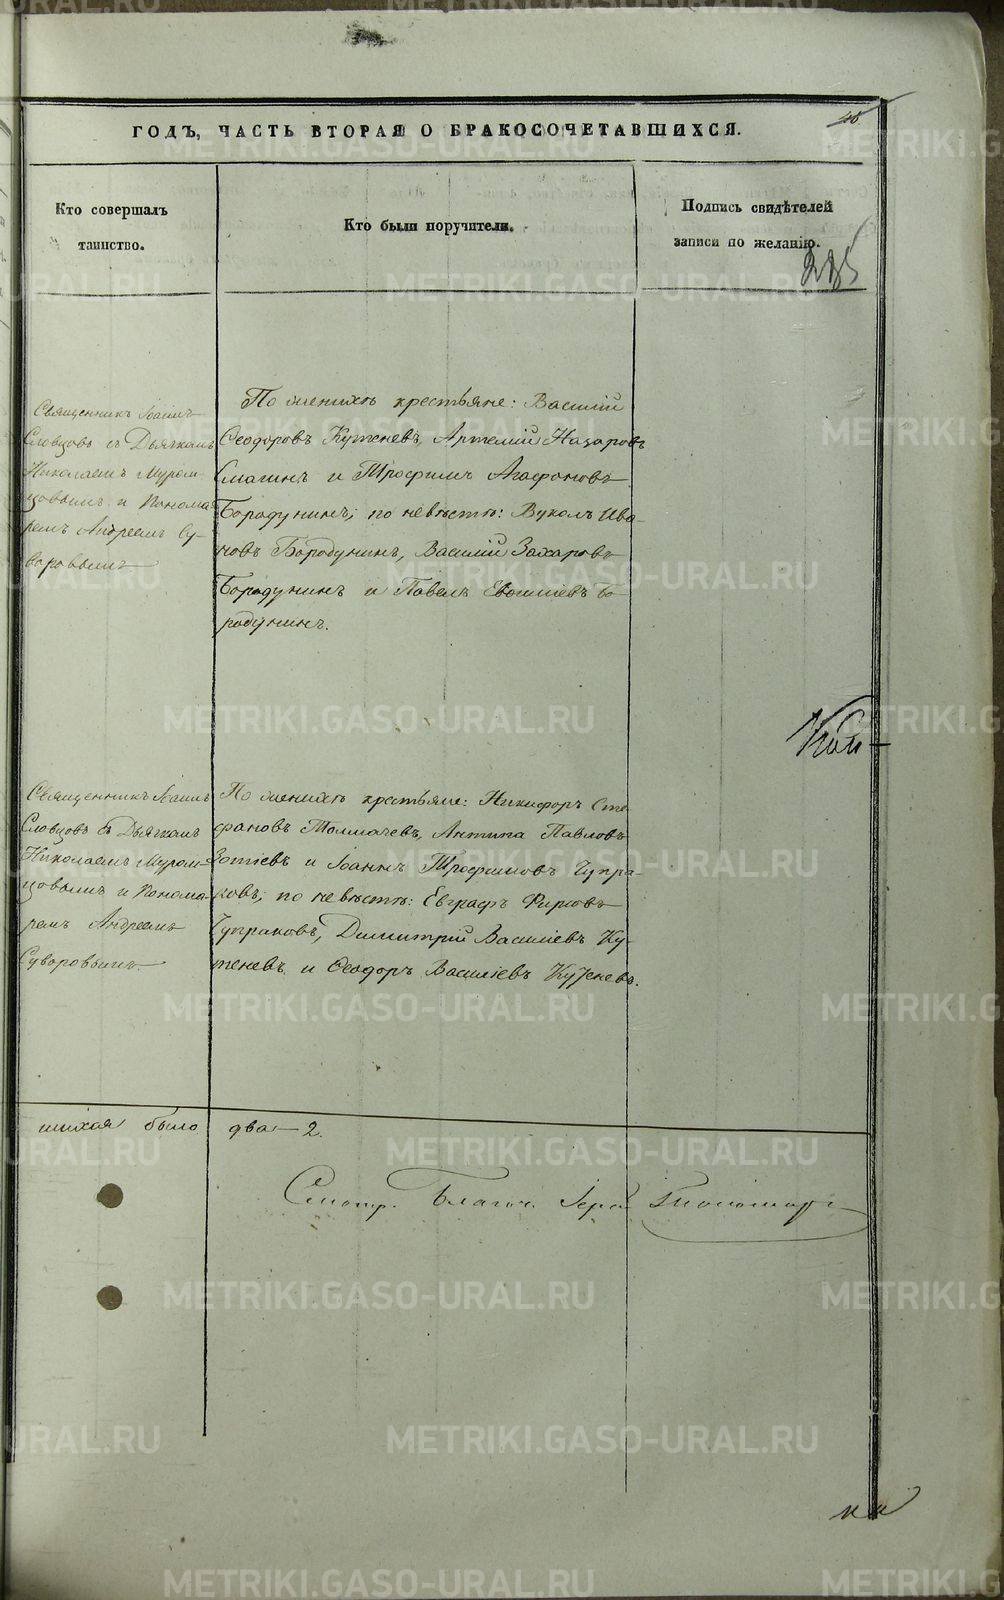 ГОДЪ, ЧАСТЬ ВТОРАЯ О БРАКОСОЧЕТАВШИХСЯ.
Кто совершалъ
таинство.
Кто были поручители.
Подпись свидѣтелей
записи по желанію.
285
Священникъ Іоаннъ
Словцовъ съ Дьячкомъ
Николаемъ Муром-
цовымъ и Понома-
ремъ Андреемъ Су-
воровымъ
По женихѣ крестьяне: Василій
Ѳеодоровъ Кутеневъ, Артемій Назаровъ
Смагинъ и Трофимъ Агафоновъ
Бородунинъ; по невѣстѣ: Вуколъ Ива-
новъ Бородунинъ, Василій Захаровъ
Бородунинъ и Павелъ Бо-
родунинъ.
Священникъ Іоаннъ
Словцовъ съ Дьячкомъ
Николаемъ Муром-
цовымъ и Понома-
ремъ Андреемъ
Суворовымъ
По женихѣ крестьяне: Никифоръ Сте-
фановъ Толмачевъ, Антипа Павловъ
Зотіевъ и Іоаннъ Трофимовъ Чупра-
ковъ; по невѣстѣ: Евграфъ Фирсовъ
Чупраковъ, Димитрій Василіевъ Ку-
теневъ и Ѳеодоръ Василіевъ Кутеневъ.
шихся было два — 2.
Смотр. Благоч. Іерей
METRIKI.GASO-URAL.RU